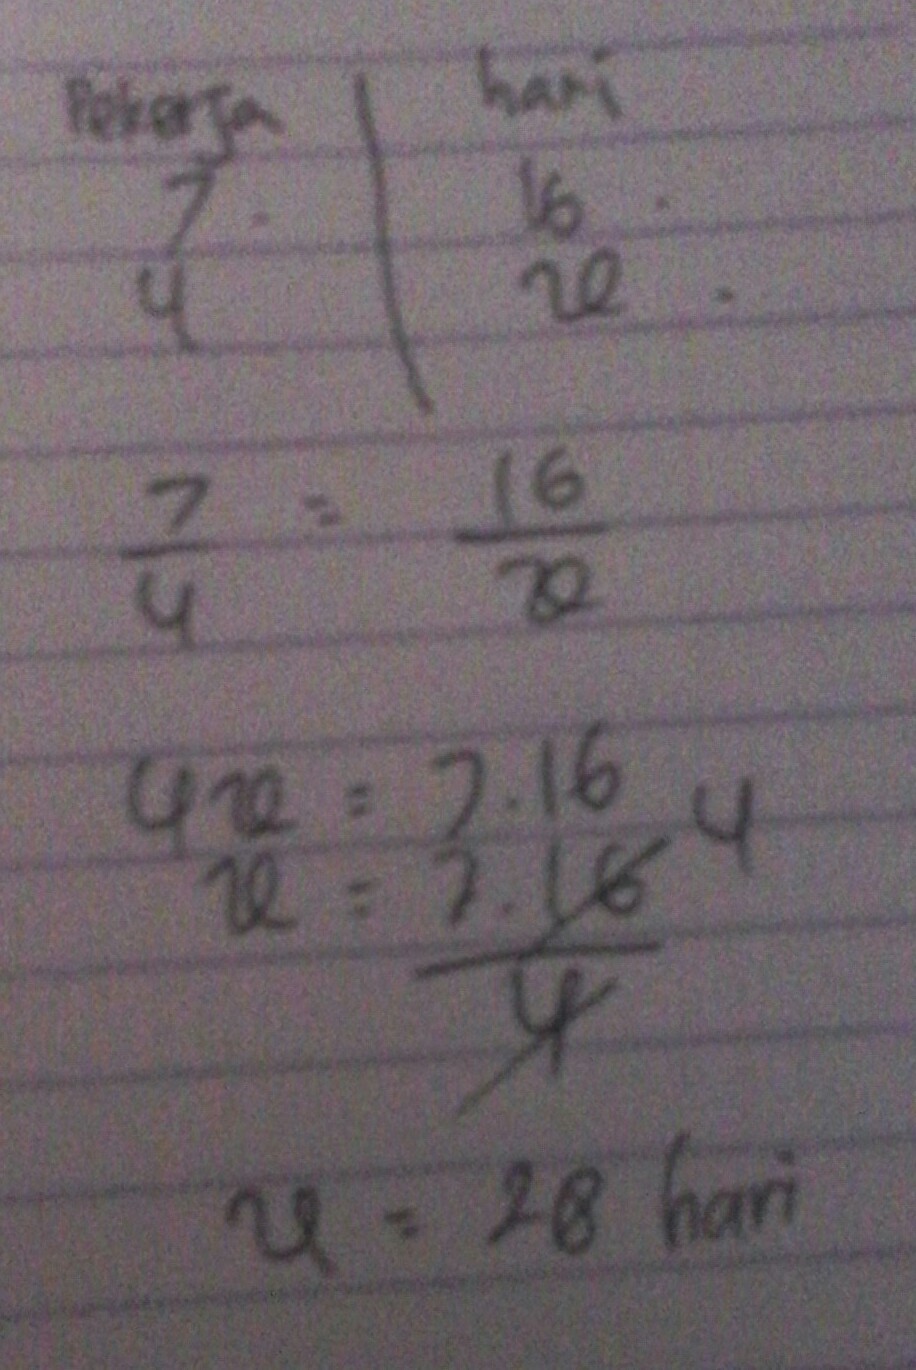 Pekerja | hari
7 . | 16 .
4 | x .
7/4 = 16/x
4x = 7.16
x = 7.16/4 4
x = 28 hari